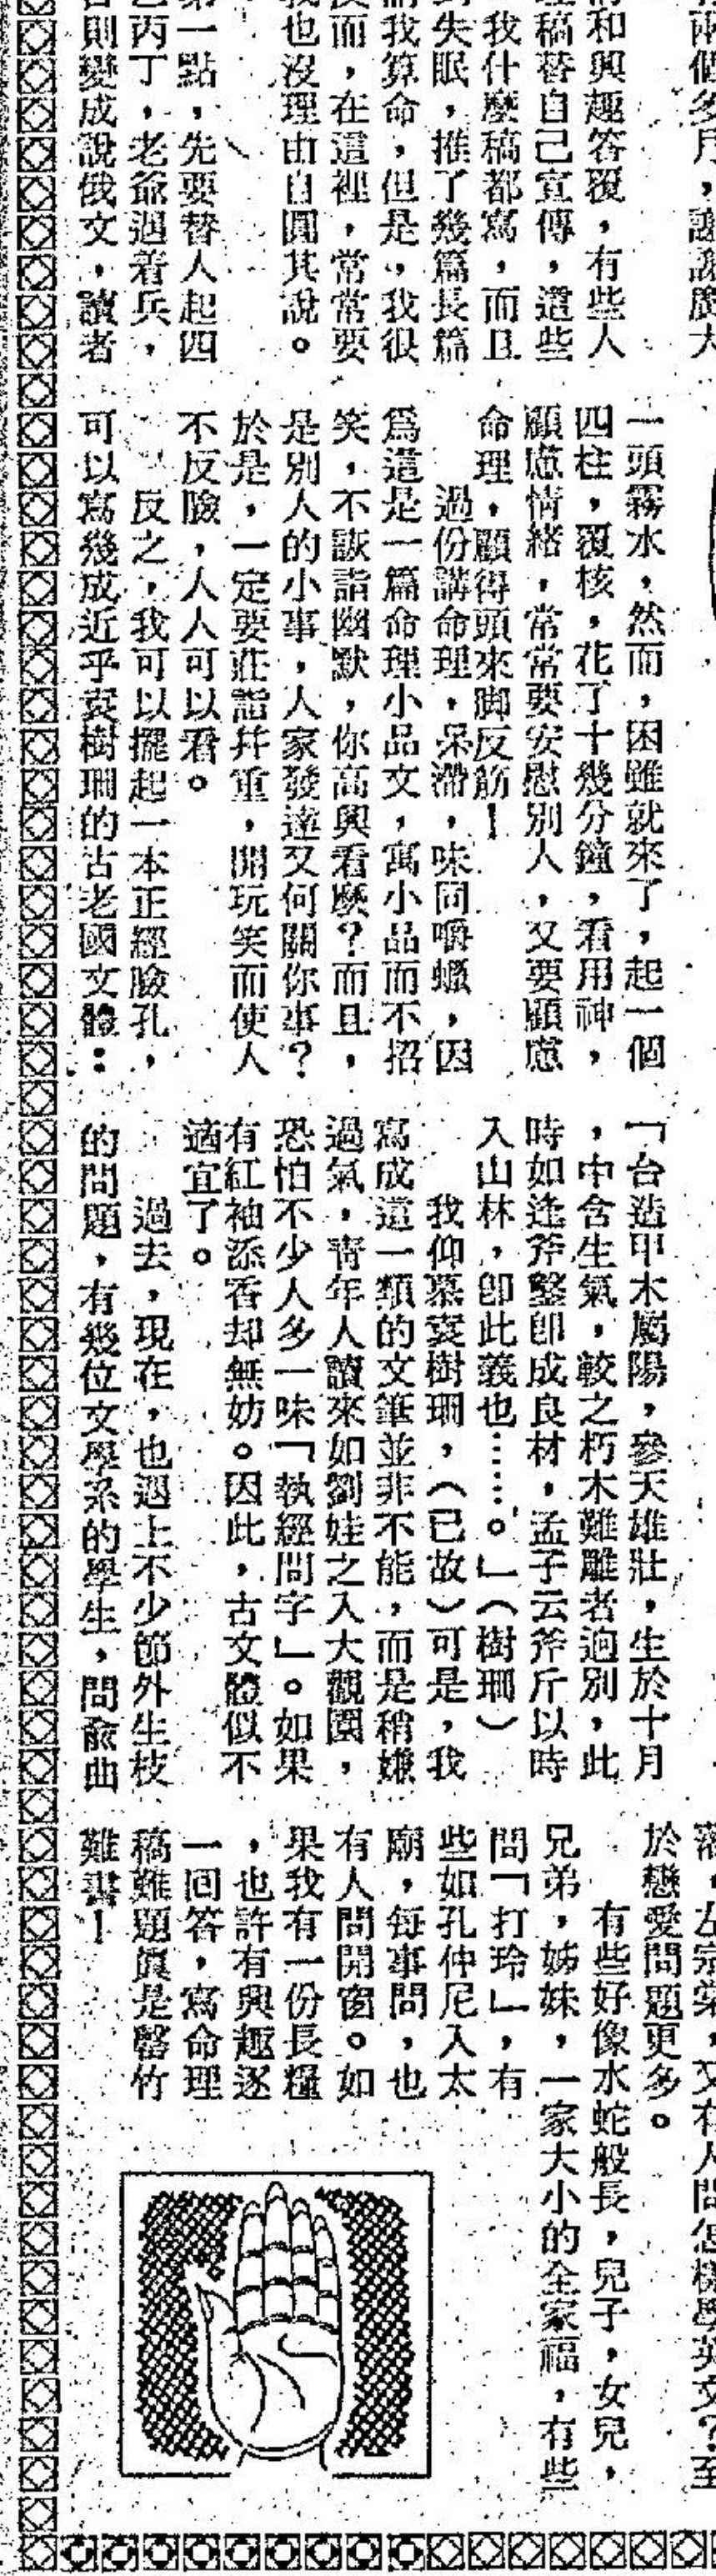 有兩個多月，謝謝廣大
和興趣答覆，有些人
稿替自己宣傳，這些
我什麼稿都寫，而且
失眠，推了幾篇長篇
我算命，但是，我很
而，在這裡，常常要
我也沒理由自圓其說。
第一點，先要替人起四
乙丙丁，老爺遇着兵，
否則變成說俄文，讀者
一頭霧水，然而，困難就來了，起一個
四柱，覆核，花了十幾分鐘，看用神，
顧慮情緒，常常要安慰別人，又要顧慮
命理，顧得頭來脚反筋！
過份講命理，呆滯，味同嚼蠟，因
爲這是一篇命理小品文，寫小品而不招
笑，不詼諧幽默，你高興看麼？而且，
是別人的小事，人家發達又何關你事？
於是，一定要莊諧幷重，開玩笑而使人
不反臉，人人可以看。
反之，我可以擺起一本正經臉孔，
可以寫幾成近乎袁樹珊的古老國文體：
「台造甲木屬陽，參天雄壯，生於十月
，中含生氣，較之朽木難雕者迥別，此
時如逢斧鑿卽成良材，孟子云斧斤以時
入山林，卽此義也……。」（樹珊）
我仰慕袁樹珊，（已故）可是，我
寫成這一類的文筆並非不能，而是稍嫌
過氣，靑年人讀來如劉娃之入大觀園，
恐怕不少人多一味「執經問字」。如果
有紅袖添香却無妨。因此，古文體似不
適宜了。
過去，現在，也遇上不少節外生枝
的問題，有幾位文學系的學生，問俞曲
左宗棠，又有人問怎樣學英文？至
於戀愛問題更多。
有些好像水蛇般長，兒子，女兒，
兄弟，姊妹，一家大小的全家福，有些
問「打玲」，有
些如孔仲尼入太
廟，每事問，也
有人問開窗。如
果我有一份長糧
，也許有興趣逐
一回答，寫命理
稿難題眞是罄竹
難書！